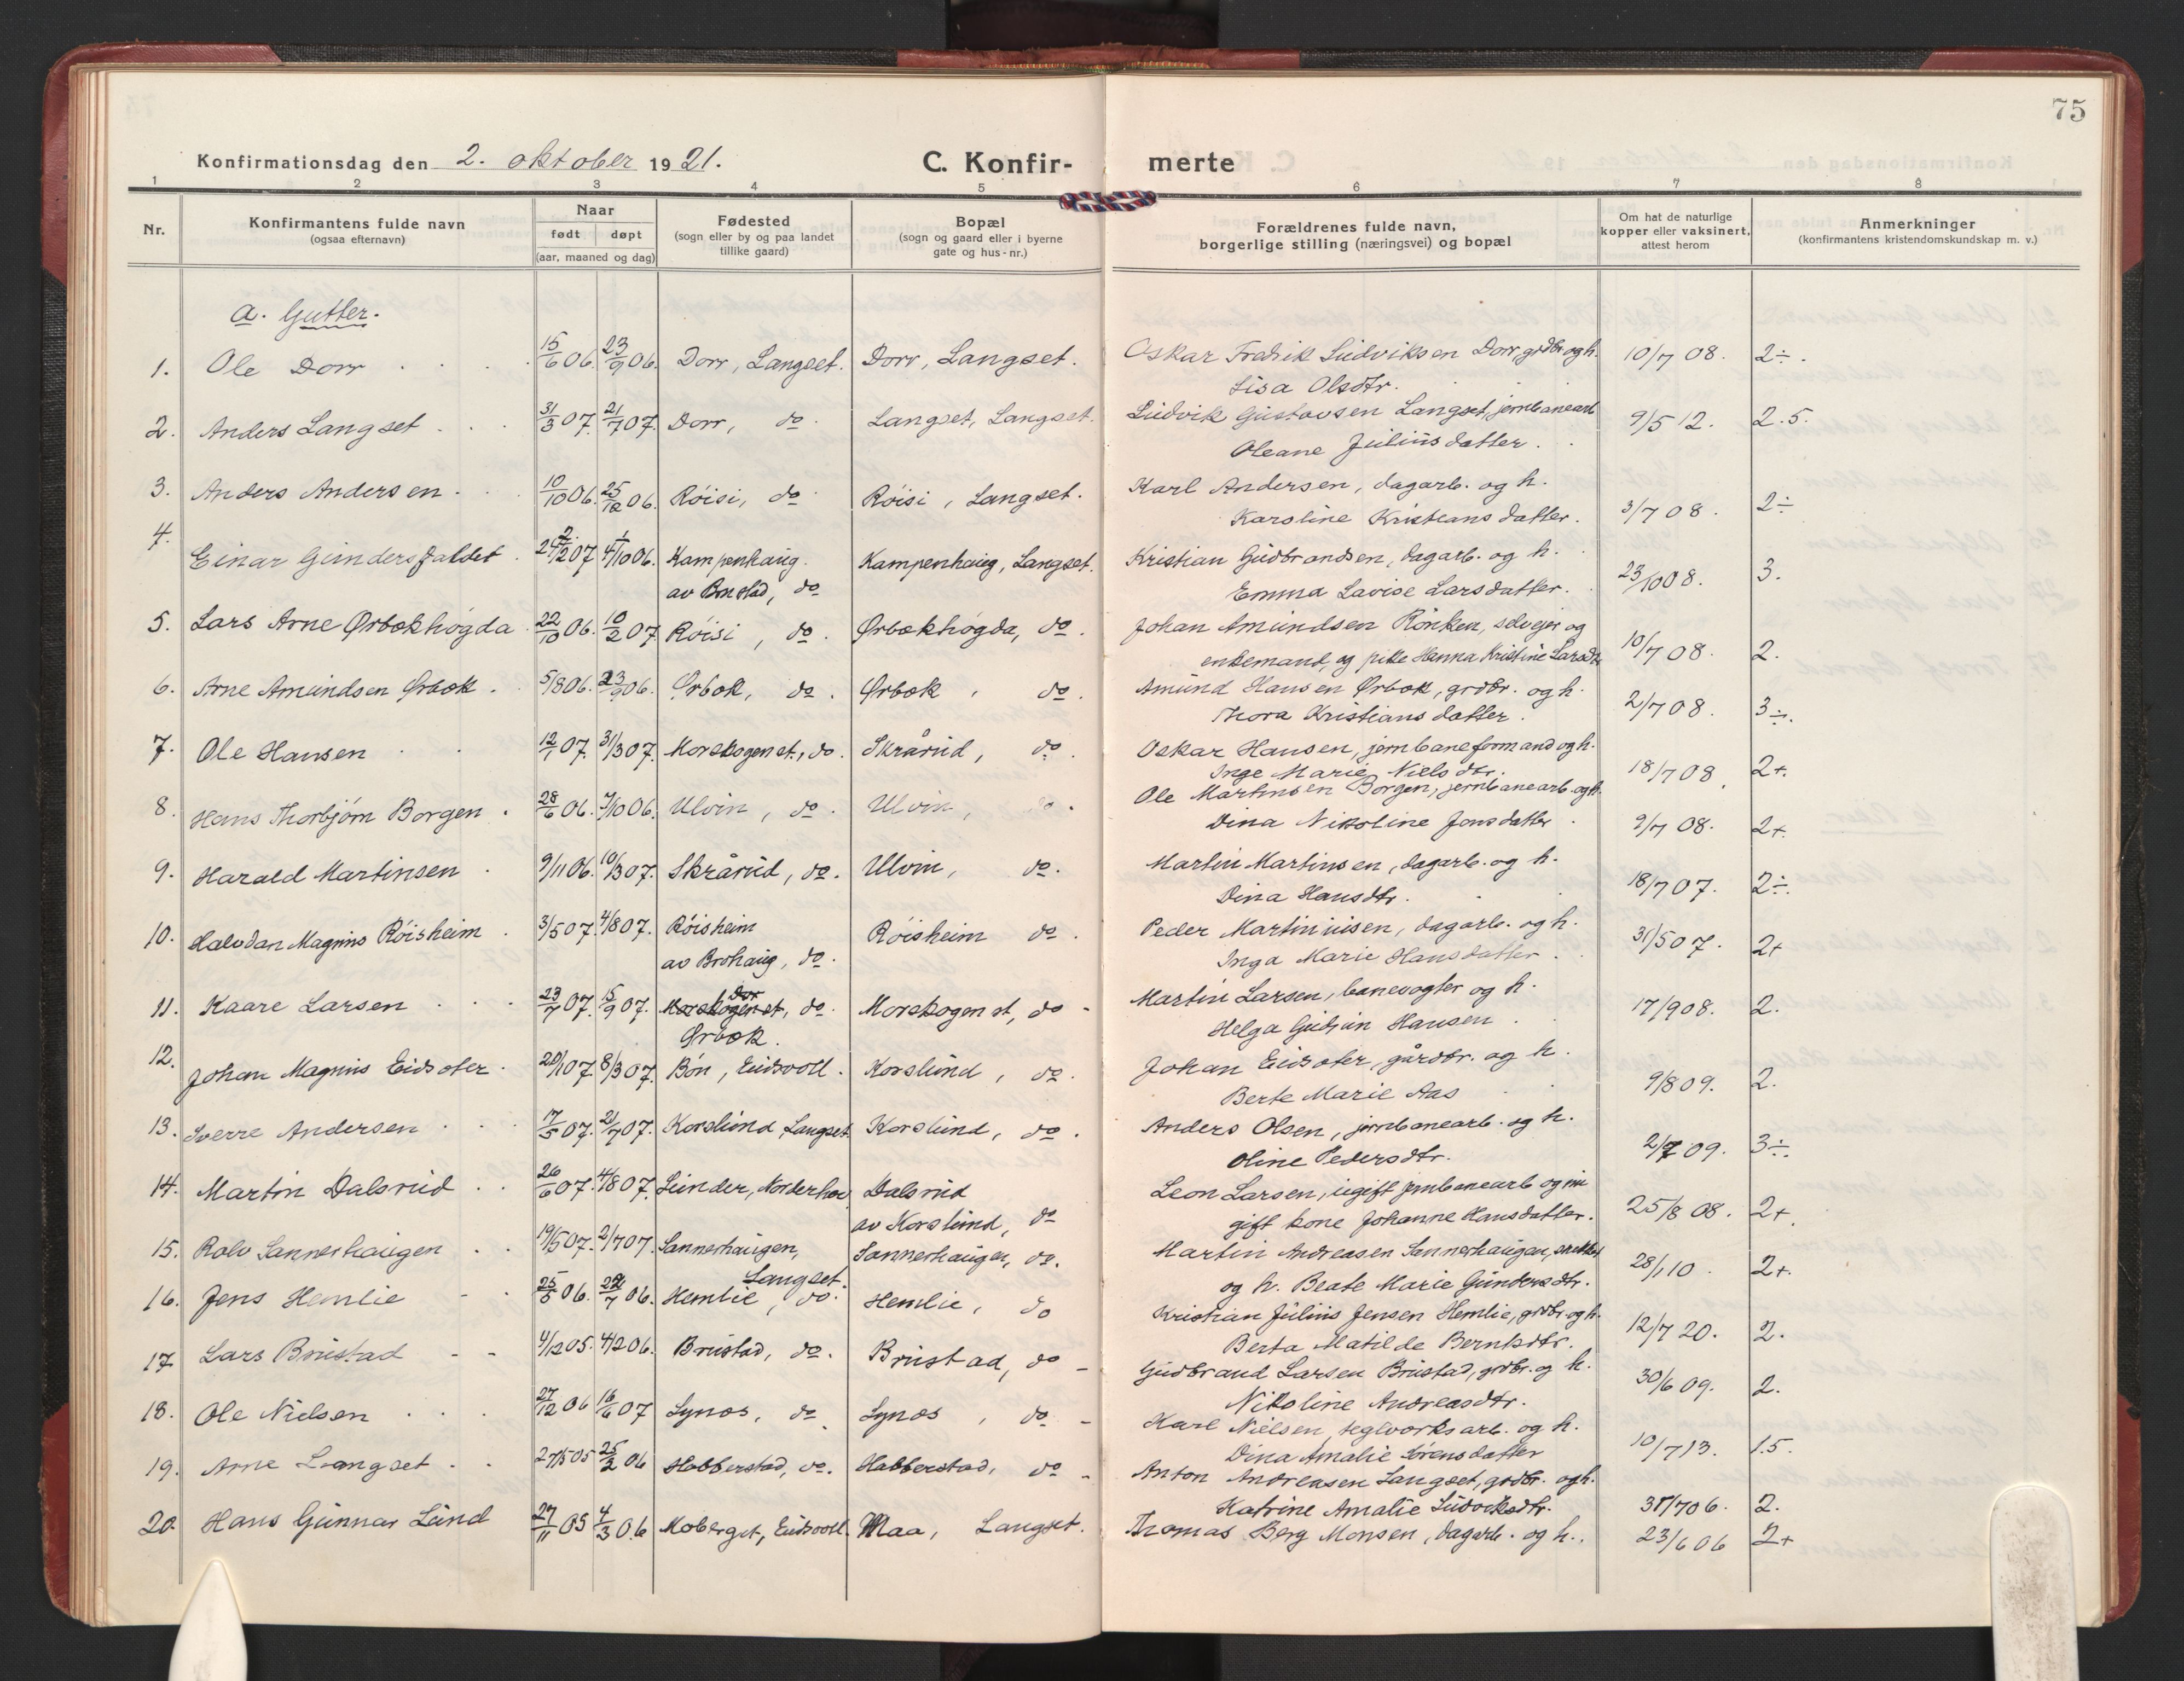 75
Konfirmationsdag den 2. oktober 1921. C. Konfir- merte
1 2 3 4 5 6 7 8
Nr. Konfirmantens fulde navn (ogsaa efternavn) Naar født døpt (aar, maaned og dag) Fødested (sogn eller by og paa landet tillike gaard) Bopæl (sogn og gaard eller i byerne gate og hus-nr.) Forældrenes fulde navn, borgerlige stilling (næringsvei) og bopæl Om hat de naturlige kopper eller vaksinert, attest herom Anmerkninger (konfirmantens kristendomskundskap m. v.)
a. Gutter.
1. Ole Dorr 15/6 06. 23/9 06. Dorr, Langset. Dorr, Langset. Oskar Fredrik Ludviksen Dorr, grdbr. og h. 10/7 08. 2÷.
Lisa Olsdtr.
2. Anders Langset 31/3 07. 21/7 07. Dorr, do. Langset, Langset. Ludvik Gustavsen Langset, jernbanearb 9/5 12. 2.5.
Oleane Juliusdatter.
3. Anders Andersen 10/10 06. 25/12 06. Røisi, do Røisi, Langset. Karl Andersen, dagarb. og h. 3/7 08. 2÷
Karoline Kristiansdatter.
4. Einar Gundersfaldet Kampenhaug Kampenhaug, Langset. Kristian Gudbrandsen, dagarb. og h. 23/10 08. 3.
av Brustad, do Emma Lovise Larsdatter.
5. Lars Arne Ørbekhøgda 22/10 06. 10/2 07. Røisi, do. Ørbekhøgda, do. Johan Amundsen Rönken, selveier og 10/7 08. 2.
enkemand, og pike Hanna Kristine Larsdtr
6. Arne Amundsen Ørbek. 5/8 06. 23/9 06. Ørbek, do. Ørbek, do. Amund Hansen Ørbek, grdbr. og h. 2/7 08. 3÷.
Thora Kristiansdatter.
7. Ole Hansen 12/1 07. 31/3 07. Morskogen st., do. Skrårud, do. Oskar Hansen, jernbaneformand og h. 18/7 08. 2+.
Inge Marie Nielsdtr.
8. Hans Thorbjørn Borgen. 28/6 06. 7/10 06. Ulvin, do. Ulvin, do. Ole Martinsen Borgen, jernbanearb. og h. 2/7 08. 2+.
Dina Nikoline Jonsdatter.
9. Harald Martinsen 9/11 06. 10/3 07. Skrårud, do. Ulvin, do. Martin Martinsen, dagarb. og h. 18/7 07. 2÷.
Dina Hansdtr.
10. Halvdan Magnus Røisheim. 3/5 07. 4/8 07. Røisheim Røisheim do. Peder Martiniusen, dagarb. og h. 31/5 07. 2+
av Brohaug, do. Inga Marie Hansdatter.
11. Kaare Larsen 23/7 07. 15/9 07. Morskogen st, do. Dor Morskogen st, do Martin Larsen, banevogter og h. 17/9 08. 2.
Ørbek. Helga Gudrun Hansen
12. Johan Magnus Eidsæter. 20/1 07. 8/3 07. Bøn, Eidsvoll. Korslund, do. Johan Eidsæter, gårdbr. og h. 9/8 09. 2.
Berte Marie Aas
13. Sverre Andersen 17/5 07. 21/7 07. Korslund, Langset Korslund, do. Anders Olsen, jernbanearb. og h. 2/7 09. 3÷.
Oline Pedersdtr.
14. Martin Dalsrud 26/6 07. 4/8 07. Lunder, Norderhov Dalsrud Leon Larsen, ugift jernbanearb og nu 25/8 08. 2+.
av Korslund, do gift kone Johanne Hansdatter.
15. Rolv Sannerhaugen 19/5 07. 2/7 07. Sannerhaugen, Sannerhaugen, do. Martin Andreasen Sannerhaugen, 28/1 10. 2+.
Langset. og h. Beate Marie Gundersdtr.
16. Jens Hemlie 25/5 06. 22/7 06. Hemlie, do. Hemlie, do Kristian Julius Jensen Hemlie, grdbr. og h. 12/7 20. 2.
Berta Matilde Berntsdtr.
17. Lars Brustad 4/12 05. 4/2 06. Brustad, do. Brustad, do Gudbrand Larsen Brustad, grdbr. og h. 30/6 09. 2.
Nikoline Andreasdtr.
18. Ole Nielsen 27/12 06 16/6 07 Lynes, do Lynes, do Karl Nielsen, teglverksarb. og h. 10/7 13. 1.5.
Dina Amalie Sørensdatter
19. Arne Langset 27/5 05 25/2 06 Habberstad, do. Habberstad, do Anton Andreasen Langset, grdbr. og h.
Katrine Amalie Ludviksdtr. 31/7 06. 2.
20. Hans Gunnar Lund 27/11 05 4/3 06 Moberget, Eidsvoll. Maa, Langset. Thomas Berg Monsen, dagarb. og h. 23/6 06 2+